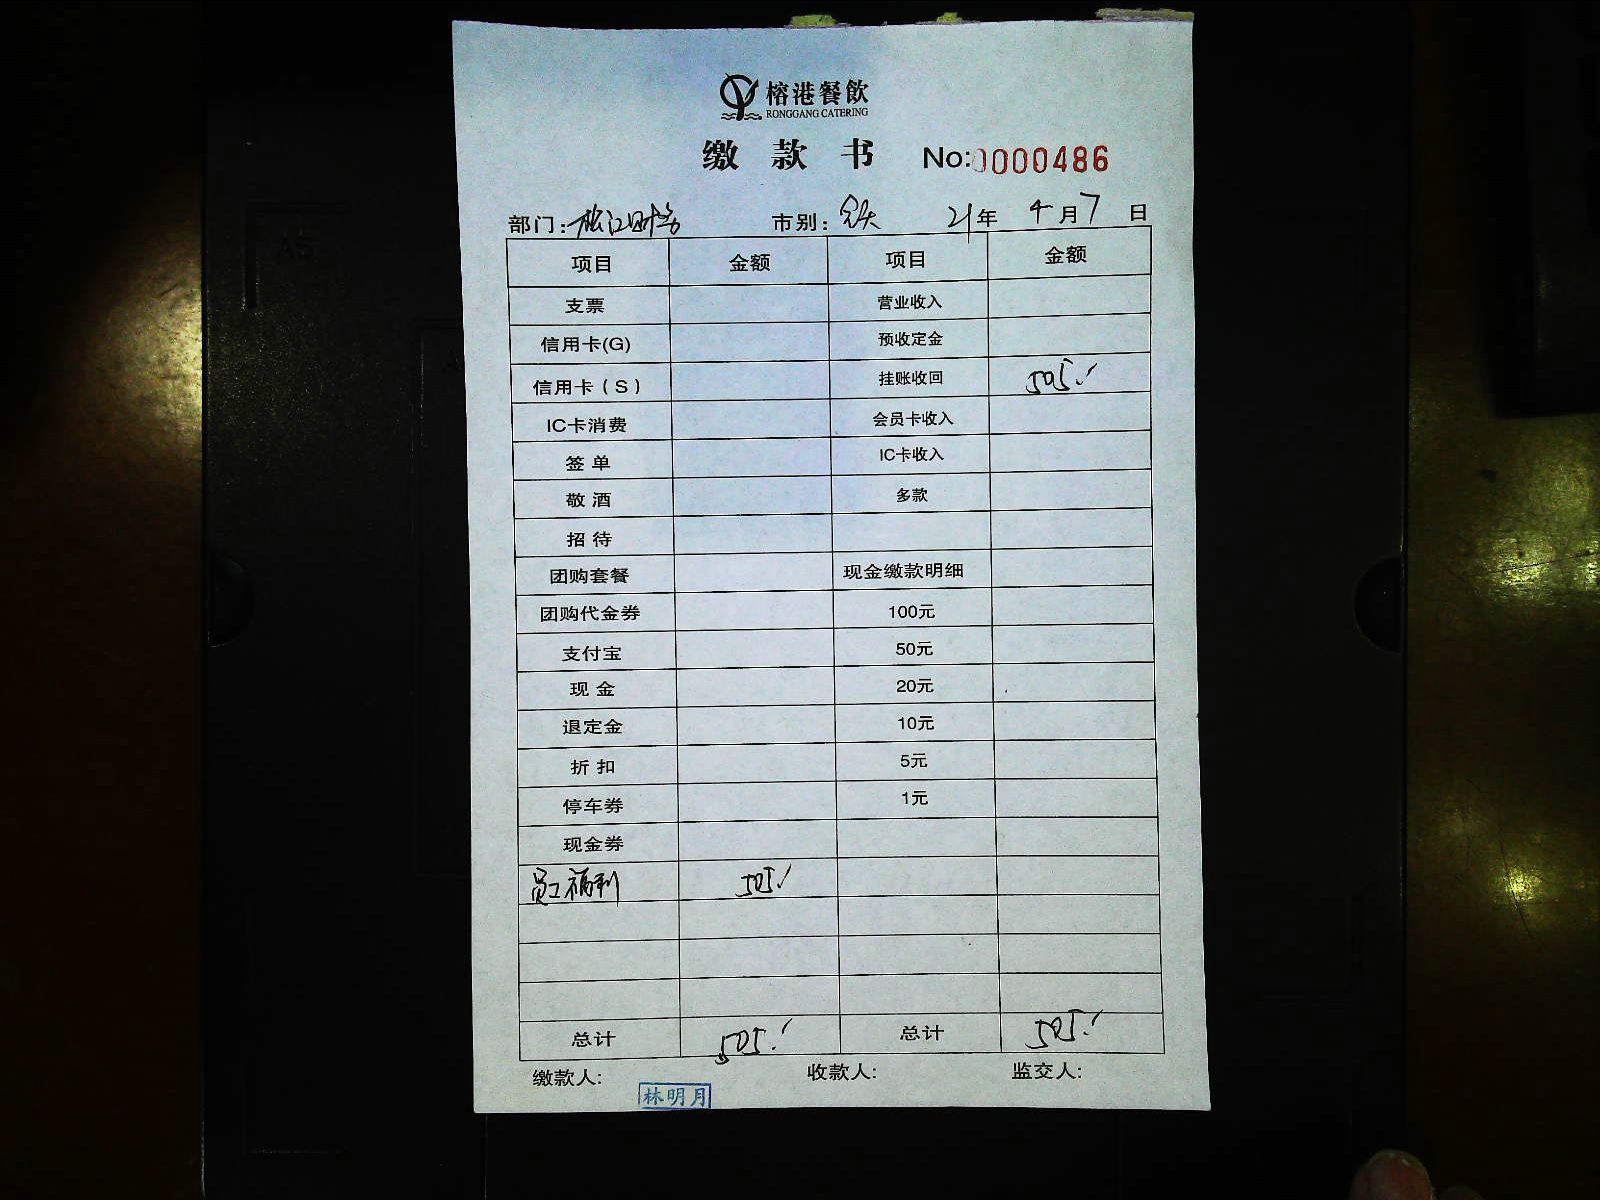 榕港餐飲
RONGGANG CATERING
缴款书 No:0000486
部门: 市别: 全天 21年 4月7日
项目 金额 项目 金额
支票 营业收入
信用卡(G) 预收定金
信用卡(S) 挂账收回 505.-
IC卡消费 会员卡收入
签单 IC卡收入
敬酒 多款
招待
团购套餐 现金缴款明细
团购代金券 100元
支付宝 50元
现金 20元
退定金 10元
折扣 5元
停车券 1元
现金券
员工福利 505.-
总计 505.- 总计 505.-
缴款人: 收款人: 监交人:
林明月